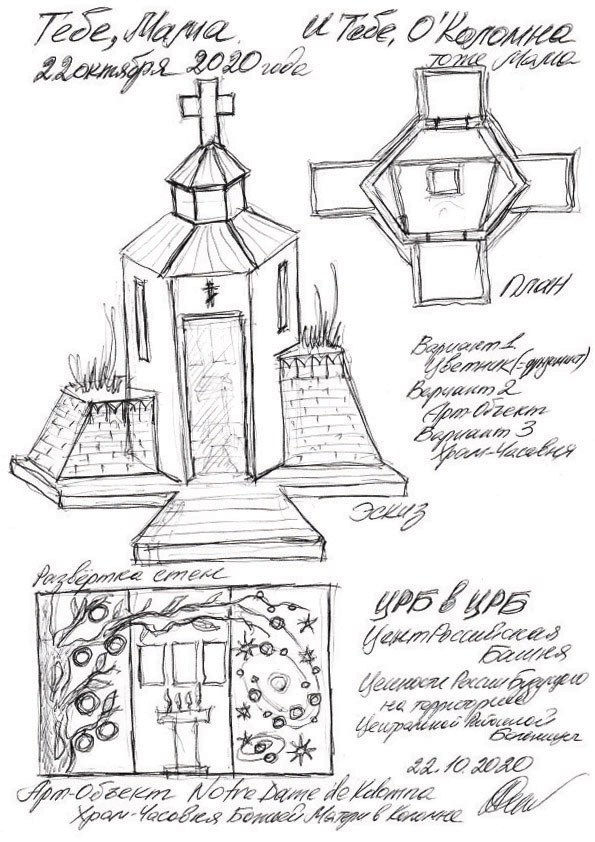 Тебе, Мама. И Тебе, О'Коломна
22 октября 2020 года тоже Мама
План
Вариант 1
Цветник (-фундамент)
Вариант 2
Арт-Объект
Вариант 3
Храм-Часовня
Эскиз
Развёртка стен
ЦРБ в ЦРБ
ЦентРоссийская
Башня
Ценности России Будущего
на территории
Центральной Районной
Больницы
22.10.2020
Арт-Объект Notre Dame de Kolomna
Храм-Часовня Божьей Матери в Коломне